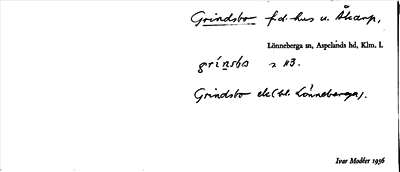 Grindsbo f.d. hus u. Åkarp,
Lönneberga sn, Aspelands hd, Klm. l.
gríṇsbo 2 H3.
Grindsbo ek (bl. Lönneberga).
Ivar Modéer 1936